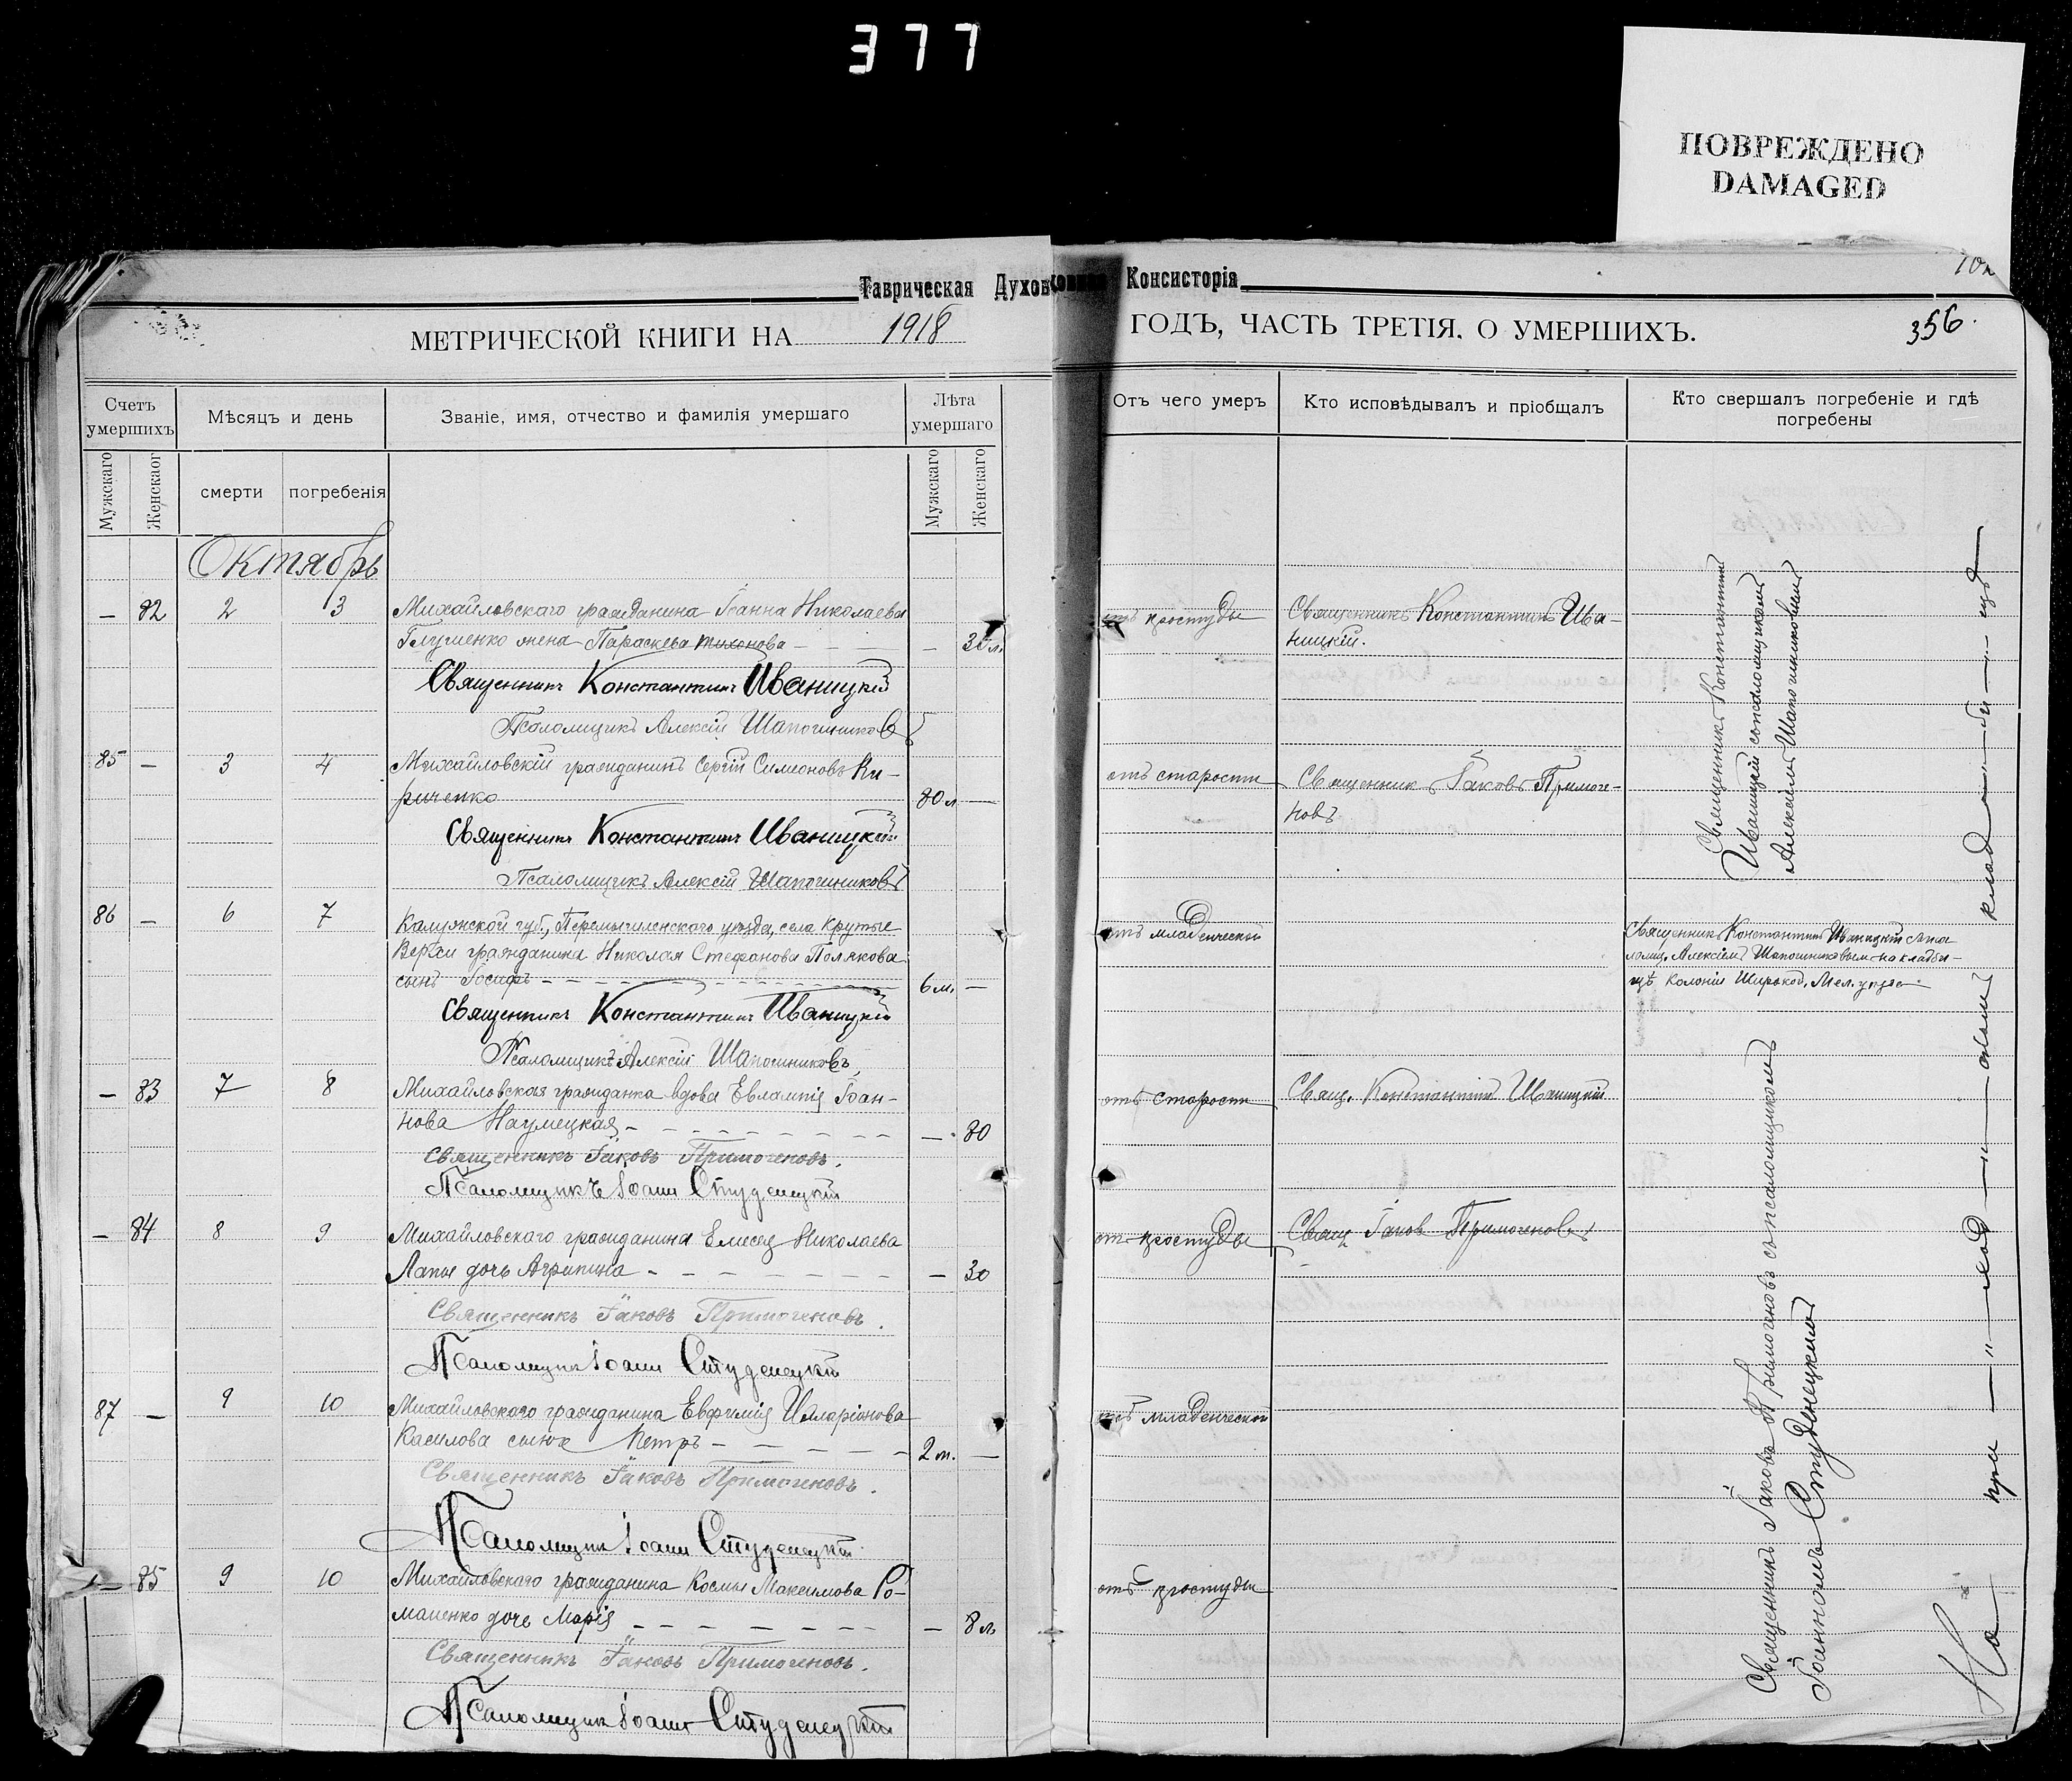 377
ПОВРЕЖДЕНО
DAMAGED
Таврическая Духовная Консисторія
МЕТРИЧЕСКОЙ КНИГИ НА 1918 ГОДЪ, ЧАСТЬ ТРЕТІЯ. О УМЕРШИХЪ.
356.
Счетъ умершихъ
Мѣсяцъ и день
Званіе, имя, отчество и фамилія умершаго
Лѣта умершаго
Мужскаго
Женскаог
смерти
погребенія
Мужскаго
Женскаго
Отъ чего умеръ
Кто исповѣдывалъ и пріобщалъ
Кто свершалъ погребеніе и гдѣ
погребены
Октябрь
— 82 2 3 Михайловскаго гражданина Іоанна Николаева
Глущенко жена Параскева Тихонова — 30 л.
Священникъ Константинъ Иваницкій
Псаломщикъ Алексій Шапошниковъ
85 — 3 4 Михайловскій гражданинъ Сергій Симеоновъ Ки-
риченко 80 л —
Священникъ Константинъ Иваницкій
Псаломщикъ Алексій Шапошниковъ
86 — 6 7 Калужской губ., Перемышленского уѣзда, села Крутые
Верхи гражданина Николая Стефанова Полякова
сынъ Іосифъ 6 м. —
Священникъ Константинъ Иваницкій
Псаломщикъ Алексій Шапошниковъ
— 83 7 8 Михайловская гражданка вдова Евлампія Іоан-
нова Наумецкая — 80
Священникъ Іаковъ Примогеновъ.
Псаломщикъ Іоанн Студенецкій
— 84 8 9 Михайловскаго гражданина Елисея Николаева
Лапы дочь Агрипина — 30
Священникъ Іаковъ Примогеновъ.
Псаломщикъ Іоанн Студенецкій
87 — 9 10 Михайловскаго гражданина Евфимія Иларіонова
Касилова сынъ Петръ 2 м. —
Священникъ Іаковъ Примогеновъ.
Псаломщикъ Іоанн Студенецкій
— 85 9 10 Михайловскаго гражданина Космы Максимова Ро-
маненко дочь Марія — 8 л.
Священникъ Іаковъ Примогеновъ.
Псаломщикъ Іоанн Студенецкій
отъ простуды
Священникъ Константинъ Ива-
ницкій.
отъ старости
Священникъ Іаковъ Примоге-
новъ
отъ младенческой
отъ старости
Свящ. Константинъ Иваницкій
от простуды
Свящ Іаков Примогеновъ
отъ младенческой
отъ простуды
Священникъ Константинъ
Иваницкій съ псаломщикомъ
Алексіемъ Шапошниковымъ
Священникъ Константинъ Иваницкій съ пса
ломщ. Алексіемъ Шапошниковым на кладби-
щѣ колоніи Широкой, Мел. уѣзда
Священникъ Іаковъ Примогеновъ съ псаломщикомъ
Іоанномъ Студенецкимъ
На при — " — ход — " — ском клад — " — би — " — щѣ